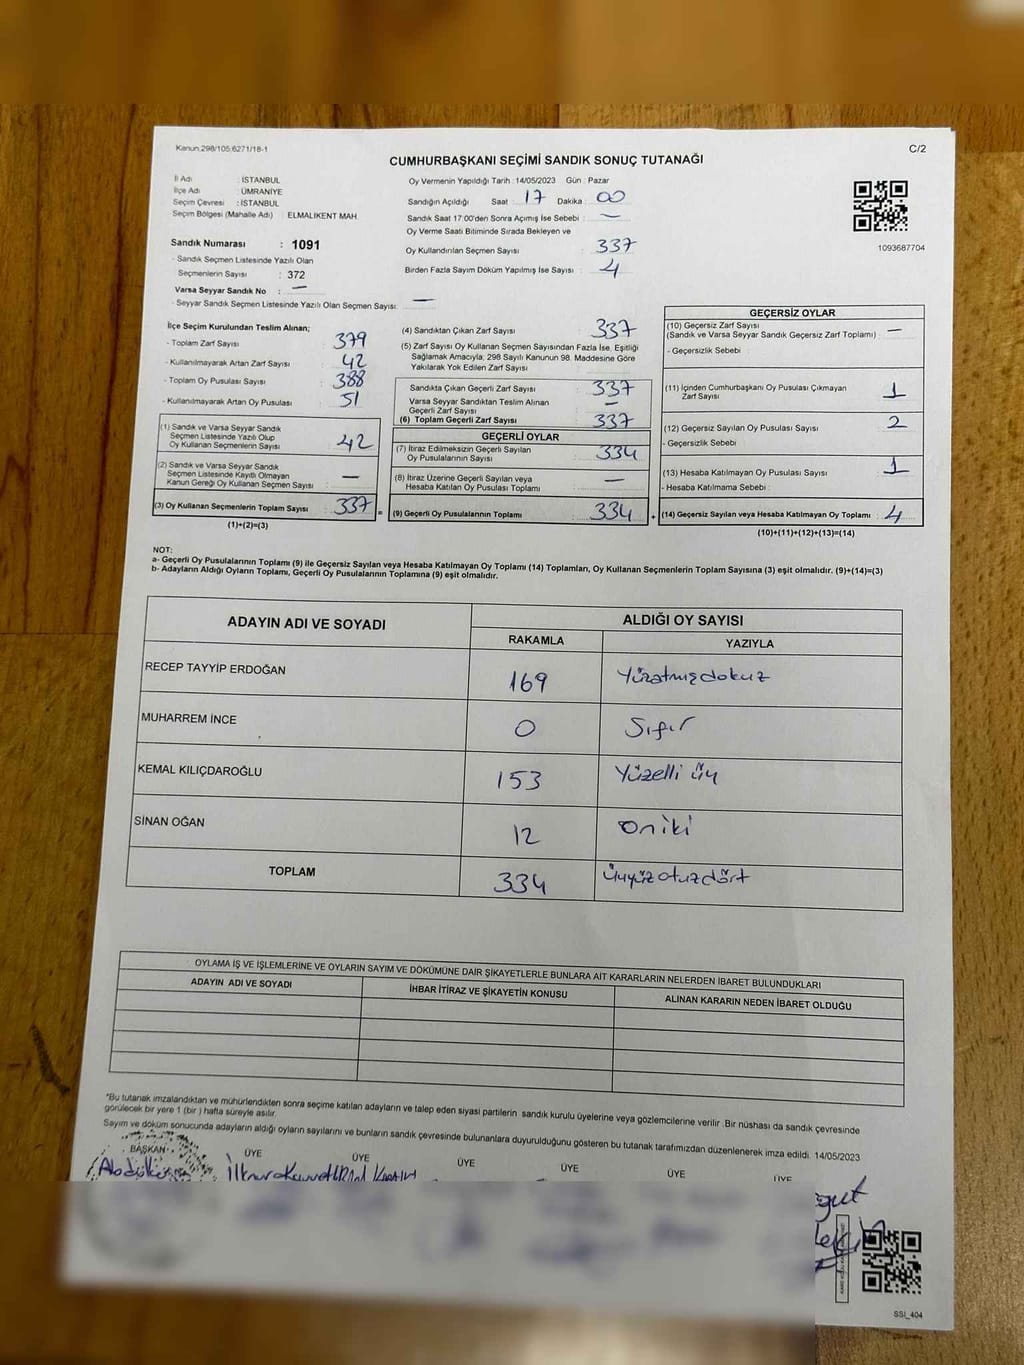 Kanun.298/105.6271/18-1
C/2
CUMHURBAŞKANI SEÇİMİ SANDIK SONUÇ TUTANAĞI
İl Adı : İSTANBUL
İlçe Adı : ÜMRANİYE
Seçim Çevresi : İSTANBUL
Seçim Bölgesi (Mahalle Adı) : ELMALIKENT MAH.
Sandık Numarası : 1091
- Sandık Seçmen Listesinde Yazılı Olan
Seçmenlerin Sayısı : 372
Varsa Seyyar Sandık No : —
- Seyyar Sandık Seçmen Listesinde Yazılı Olan Seçmen Sayısı: —
Oy Vermenin Yapıldığı Tarih :14/05/2023 Gün : Pazar
Sandığın Açıldığı Saat : 17 Dakika : 00
Sandık Saat 17:00'den Sonra Açımış İse Sebebi : —
Oy Verme Saati Bitiminde Sırada Bekleyen ve
Oy Kullandırılan Seçmen Sayısı : 337
Birden Fazla Sayım Döküm Yapılmış İse Sayısı : 4
1093687704
İlçe Seçim Kurulundan Teslim Alınan;
- Toplam Zarf Sayısı : 379
- Kullanılmayarak Artan Zarf Sayısı : 42
- Toplam Oy Pusulası Sayısı : 388
- Kullanılmayarak Artan Oy Pusulası : 51
(1) Sandık ve Varsa Seyyar Sandık
Seçmen Listesinde Yazılı Olup
Oy Kullanan Seçmenlerin Sayısı : 42
(2) Sandık ve Varsa Seyyar Sandık
Seçmen Listesinde Kayıtlı Olmayan
Kanun Gereği Oy Kullanan Seçmen Sayısı : —
(3) Oy Kullanan Seçmenlerin Toplam Sayısı : 337
(1)+(2)=(3)
(4) Sandıktan Çıkan Zarf Sayısı : 337
(5) Zarf Sayısı Oy Kullanan Seçmen Sayısından Fazla İse, Eşitliği
Sağlamak Amacıyla, 298 Sayılı Kanunun 98. Maddesine Göre
Yakılarak Yok Edilen Zarf Sayısı :
Sandıkta Çıkan Geçerli Zarf Sayısı : 337
Varsa Seyyar Sandıktan Teslim Alınan
Geçerli Zarf Sayısı : —
(6) Toplam Geçerli Zarf Sayısı : 337
GEÇERLİ OYLAR
(7) İtiraz Edilmeksizin Geçerli Sayılan
Oy Pusulalarının Sayısı : 334
(8) İtiraz Üzerine Geçerli Sayılan veya
Hesaba Katılan Oy Pusulası Toplamı : —
= (9) Geçerli Oy Pusulalarının Toplamı : 334
GEÇERSİZ OYLAR
(10) Geçersiz Zarf Sayısı
(Sandık ve Varsa Seyyar Sandık Geçersiz Zarf Toplamı) : —
- Geçersizlik Sebebi :
(11) İçinden Cumhurbaşkanı Oy Pusulası Çıkmayan
Zarf Sayısı : 1
(12) Geçersiz Sayılan Oy Pusulası Sayısı : 2
- Geçersizlik Sebebi :
(13) Hesaba Katılmayan Oy Pusulası Sayısı : 1
- Hesaba Katılmama Sebebi :
+ (14) Geçersiz Sayılan veya Hesaba Katılmayan Oy Toplamı : 4
(10)+(11)+(12)+(13)=(14)
NOT:
a- Geçerli Oy Pusulalarının Toplamı (9) ile Geçersiz Sayılan veya Hesaba Katılmayan Oy Toplamı (14) Toplamları, Oy Kullanan Seçmenlerin Toplam Sayısına (3) eşit olmalıdır. (9)+(14)=(3)
b- Adayların Aldığı Oyların Toplamı, Geçerli Oy Pusulalarının Toplamına (9) eşit olmalıdır.
ADAYIN ADI VE SOYADI
ALDIĞI OY SAYISI
RAKAMLA YAZIYLA
RECEP TAYYİP ERDOĞAN 169 Yüzatmışdokuz
MUHARREM İNCE 0 Sıfır
KEMAL KILIÇDAROĞLU 153 Yüzelli üç
SİNAN OĞAN 12 oniki
TOPLAM 334 Üçyüzotuzdört
OYLAMA İŞ VE İŞLEMLERİNE VE OYLARIN SAYIM VE DÖKÜMÜNE DAİR ŞİKAYETLERLE BUNLARA AİT KARARLARIN NELERDEN İBARET BULUNDUKLARI
ADAYIN ADI VE SOYADI İHBAR İTİRAZ VE ŞİKAYETİN KONUSU ALINAN KARARIN NEDEN İBARET OLDUĞU
*Bu tutanak imzalandıktan ve mühürlendikten sonra seçime katılan adayların ve talep eden siyasi partilerin sandık kurulu üyelerine veya gözlemcilerine verilir. Bir nüshası da sandık çevresinde
görülecek bir yere 1 (bir) hafta süreyle asılır.
Sayım ve döküm sonucunda adayların aldığı oyların sayılarını ve bunların sandık çevresinde bulunanlara duyurulduğunu gösteren bu tutanak tarafımızdan düzenlenerek imza edildi. 14/05/2023
BAŞKAN ÜYE ÜYE ÜYE ÜYE ÜYE ÜYE
SSI_404